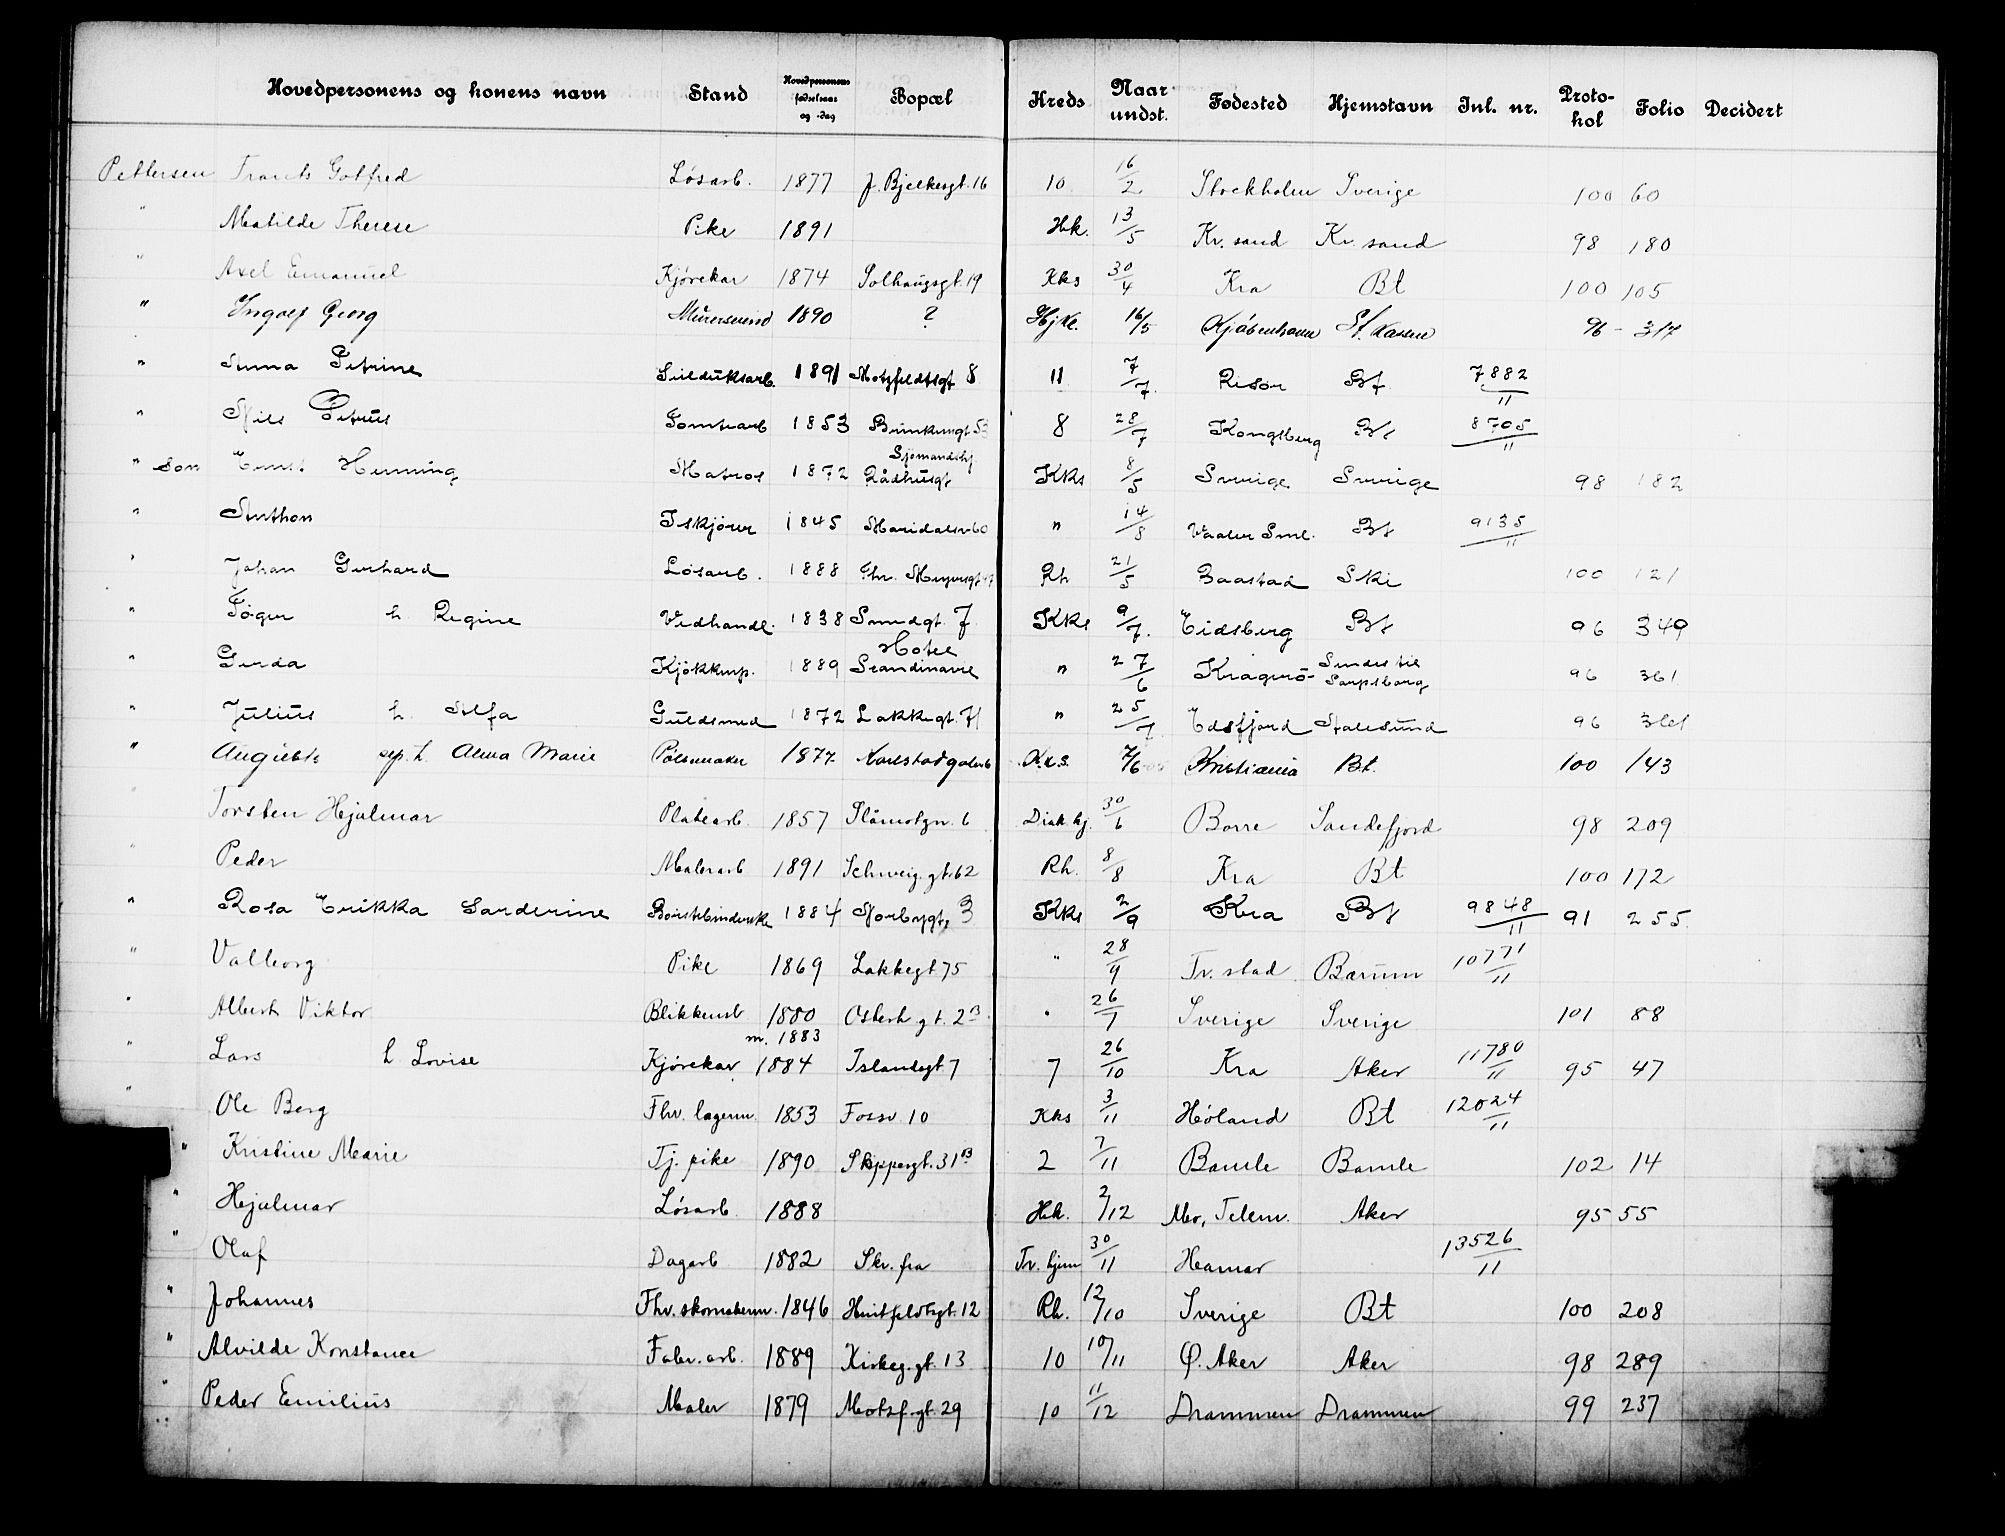 Hovedpersonens og konens navn Stand Hovedpersonens fødselsaar og -dag Bopæl Kreds Naar undst. Fødested Hjemstavn Inl. nr. Protokol Folio Decidert
Pettersen Frants Gotfred Løsarb. 1877 J. Bjelkesgt. 16 10 16/2 Stockholm Sverige 100 60
" Matilde Therese Pike 1891 Hk. 13/5 Kr. sand Kr. sand 98 180
" Axel Emanuel Kjørekar 1874 Solhaugsgt. 19 Kks 30/4 Kra Bt 100 105
" Ingolf Georg Murersvend 1890 ? Hjkl. 16/5 Kjøbenhavn St. kassen 96 - 317
" Anna Petrine 1891 Motzfeldtsgt 8 11 7/7. Risør Bt 7882/11
" Nils Petrus Tomtearb 1853 53 8 28/7 Kongsberg Bt 8705/11
" sson Ernst Henning Matros 1872 Sjømandshj. Rådhusgt KKs 8/5 Sverige Sverige 98 182
" Anthon Iskjører 1845 Maridalsv 60 " 14/8 Vaaler Sml. Bt 9135/11
" Johan Gerhard Løsarb. 1888 Chr. Meyersgt 47 Rh 21/5 Baastad Ski 100 121
" Jøger h. Regine Vedhandl. 1838 Smedgt. 7 KKs 9/7. Eidsberg Bt 96 349
" Gerda Kjøkkenp. 1889 Hotel Scandinavie " 27/6 Kragerø Sendes til Sarpsborg 96 361
" Julius h. Alfa Guldsmed 1872 Lakkegt. 71 " 25/7 Edsfjord Aalesund 96
" August sep. h. Alma Marie Pølsemaker 1877 Karlstadgaten 6 K.k.s. 7/6 Kristiania Bt. 100 143
Torsten Hjalmar Platearb. 1857 Slåmotgn. 6 Diak. hj. 30/6 Borre Sandefjord 98 209
" Peder Malerarb 1891 Schweig. gt. 62 Rh. 8/8 Kra Bt 100 172
" Rosa Erikka Sarderine Børstebinderske 1884 Norbygt. 3 KKs 2/9 Kra Bt 9848/11 91 255
" Valborg Pike 1869 Lakkegt 75 " 28/9 Fr. stad Bærum 10771/11
" Albert Viktor Blikkensl 1880 Osterh gt. 2 B " 26/7 Sverige Sverige 101 88
" Lars h Lovise Kjørekar m. 1883 1884 Islandsgt 7 7 26/10 Kra Aker 11780/11 95 47
" Ole Berg Fhv. lagerm. 1853 Fossv. 10 Kks 3/11 Høland Bt 12024/11
" Kristine Marie Tj. pike 1890 Skippergt. 31 B 2 7/11 Bamle Bamle 102 14
" Hjalmar Løsarb. 1888 Hk. 2/12 Mo, Telem. Aker 95 55
" Olaf Dagarb 1882 Skr. fra Fr. hjem 30/11 Hamar 13526/11
" Johannes Fhv. skomakerm. 1846 Huitfeldtsgt. 12 Rh. 12/10 Sverige Bt 100 208
" Alvilde Konstance Fabr. arb. 1889 Kirkeg. gt. 13 10 10/11 Ø. Aker Aker 98 289
" Peder Emilius Maler 1879 Motzf. gt. 29 10 11/12 Drammen Drammen 99 237